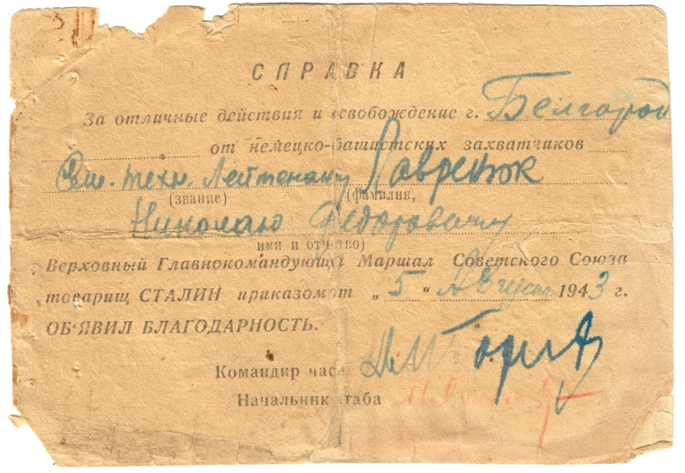 СПРАВКА
За отличные действия и освобождение г. Белгород
от немецко-фашистских захватчиков
Ст. техн. Лейтенанту Лавренюк
(звание) (фамилия,
Николаю Федоровичу
имя и отчество)
Верховный Главнокомандующий Маршал Советского Союза
товарищ СТАЛИН приказом от „ 5 " Августа 1943 г.
ОБ'ЯВИЛ БЛАГОДАРНОСТЬ.
Командир части
Начальник штаба